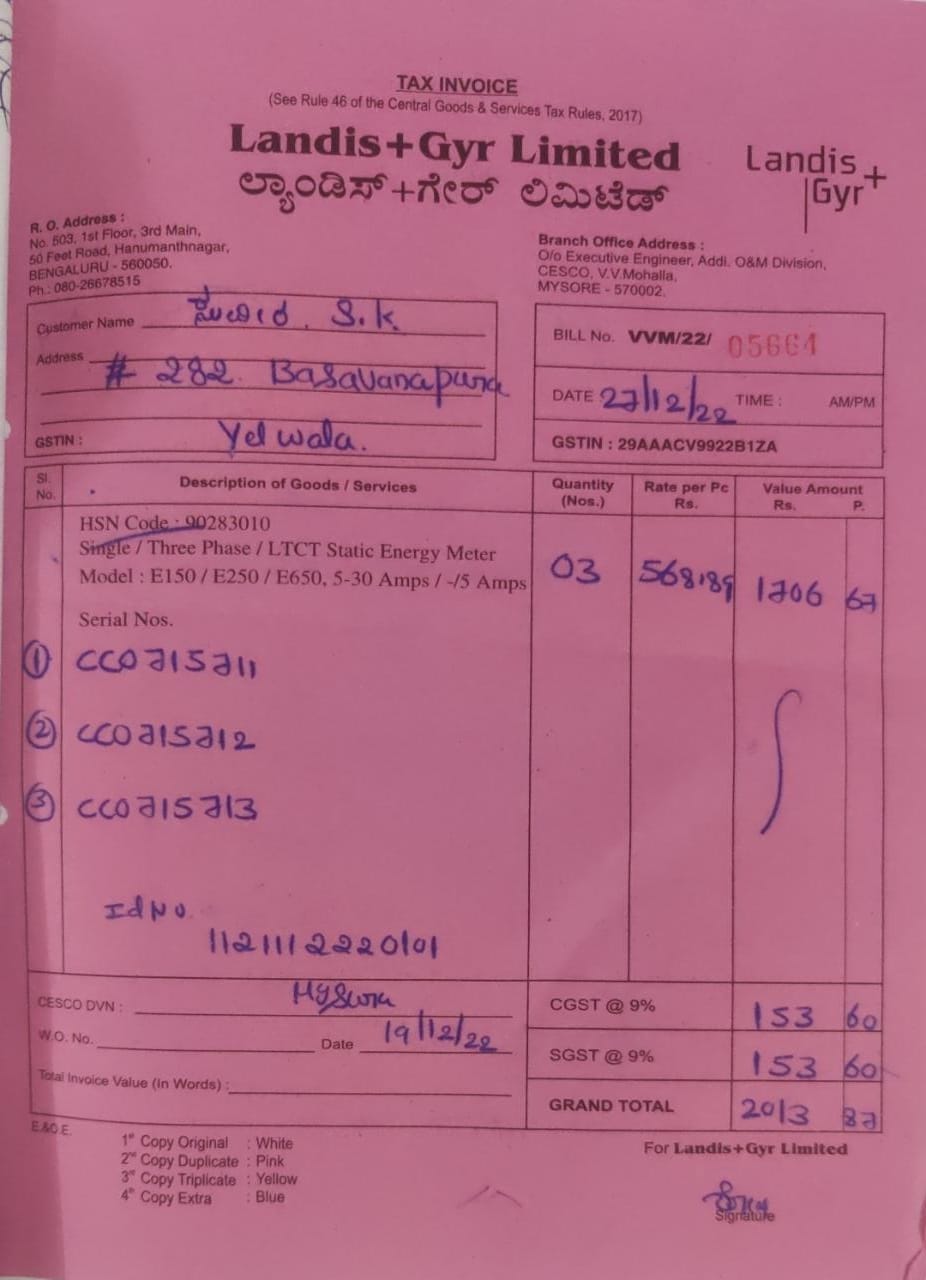 TAX INVOICE
(See Rule 46 of the Central Goods & Services Tax Rules, 2017)
Landis+Gyr Limited
ಲ್ಯಾಂಡಿಸ್+ಗೇರ್ ಲಿಮಿಟೆಡ್
Landis+
Gyr
R. O. Address :
No. 503, 1st Floor, 3rd Main,
50 Feet Road, Hanumanthnagar,
BENGALURU - 560050.
Ph.: 080-26678515
Branch Office Address :
O/o Executive Engineer, Addl. O&M Division,
CESCO, V.V.Mohalla,
MYSORE - 570002.
Customer Name S.K
Address # 282 Basavanapura
GSTIN : Yelwala.
BILL No. VVM/22/ 05664
DATE 27/12/22 TIME : AM/PM
GSTIN : 29AAACV9922B1ZA
Sl. No. Description of Goods / Services Quantity (Nos.) Rate per Pc Rs. Value Amount Rs. P.
HSN Code : 90283010
Single / Three Phase / LTCT Static Energy Meter
Model : E150 / E250 / E650, 5-30 Amps / -/5 Amps 03 568.89 1706 67
Serial Nos.
1 CC0715711
2 CC0715712
3 CC0715713
Id No
1121112220101
CESCO DVN : Mysuru
W.O. No. Date 19/12/22
Total Invoice Value (In Words) :
CGST @ 9% 153 60
SGST @ 9% 153 60
GRAND TOTAL 2013 87
E.&O.E.
1st Copy Original : White
2nd Copy Duplicate : Pink
3rd Copy Triplicate : Yellow
4th Copy Extra : Blue
For Landis+Gyr Limited
Signature